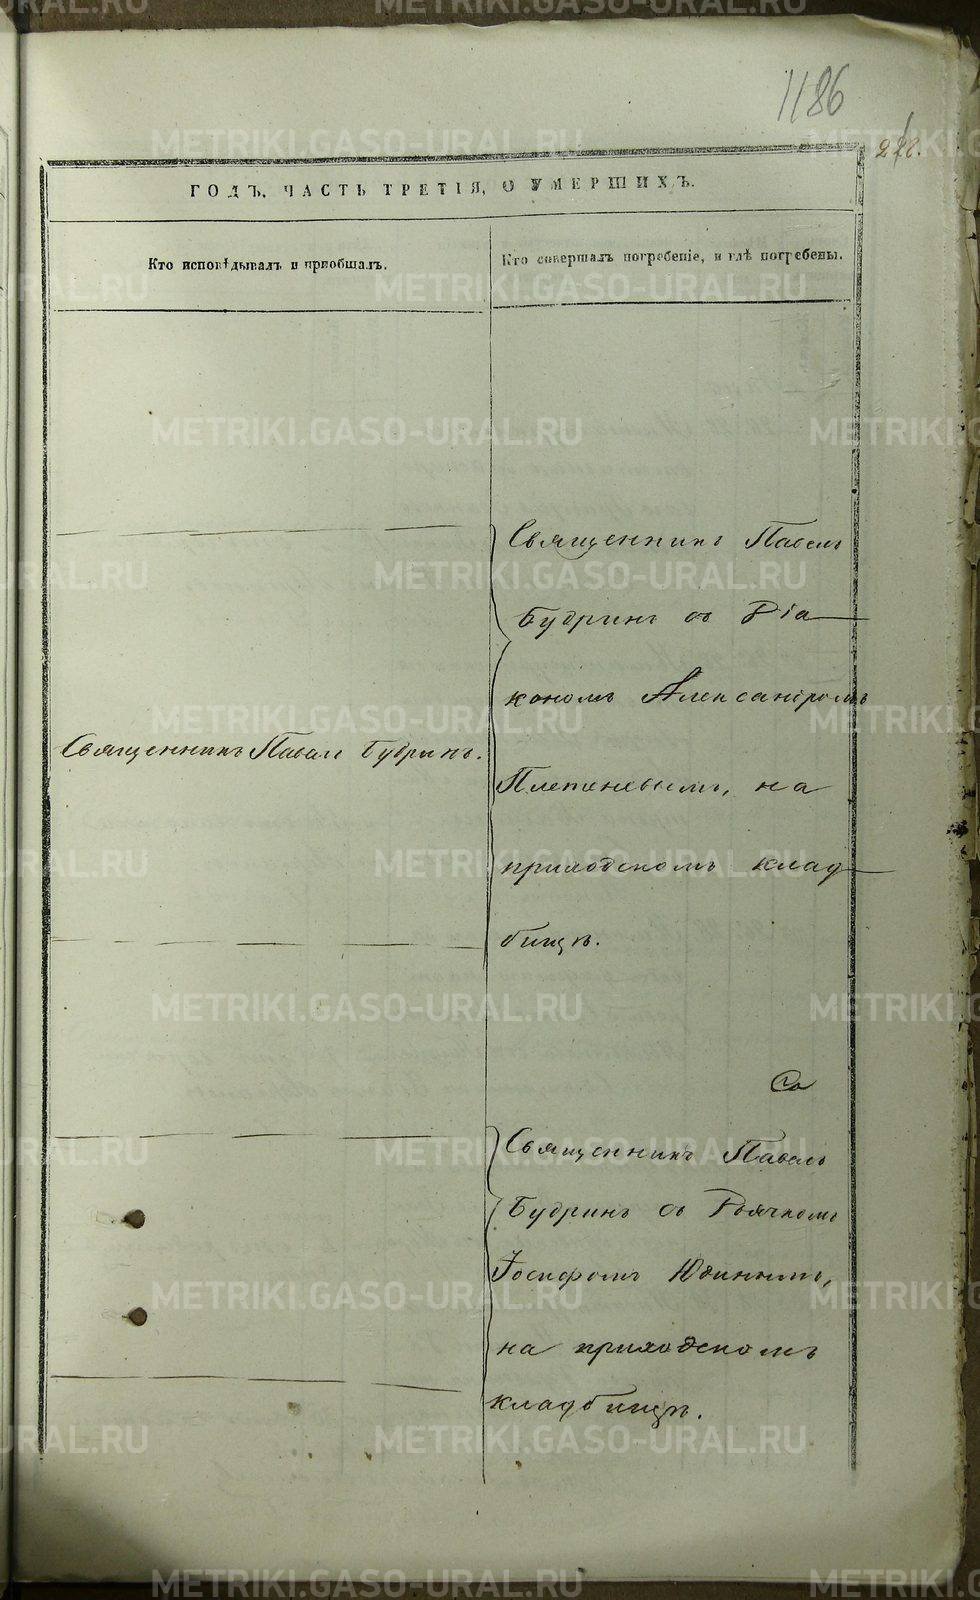 1186
ГОДЪ, ЧАСТЬ ТРЕТІЯ, О УМЕРШИХЪ.
Кто исповѣдывалъ и приобщалъ.
Кто совершалъ погребеніе, и гдѣ погребены.
Священникъ Павелъ
Будринъ съ Діа
кономъ Александромъ
Священникъ Павелъ Будринъ.
на
приходскомъ клад
бищѣ.
Священникъ Павелъ
Будринъ съ Дьячкомъ
Іосифомъ Юдинымъ,
на приходскомъ
кладбищѣ.
METRIKI.GASO-URAL.RU